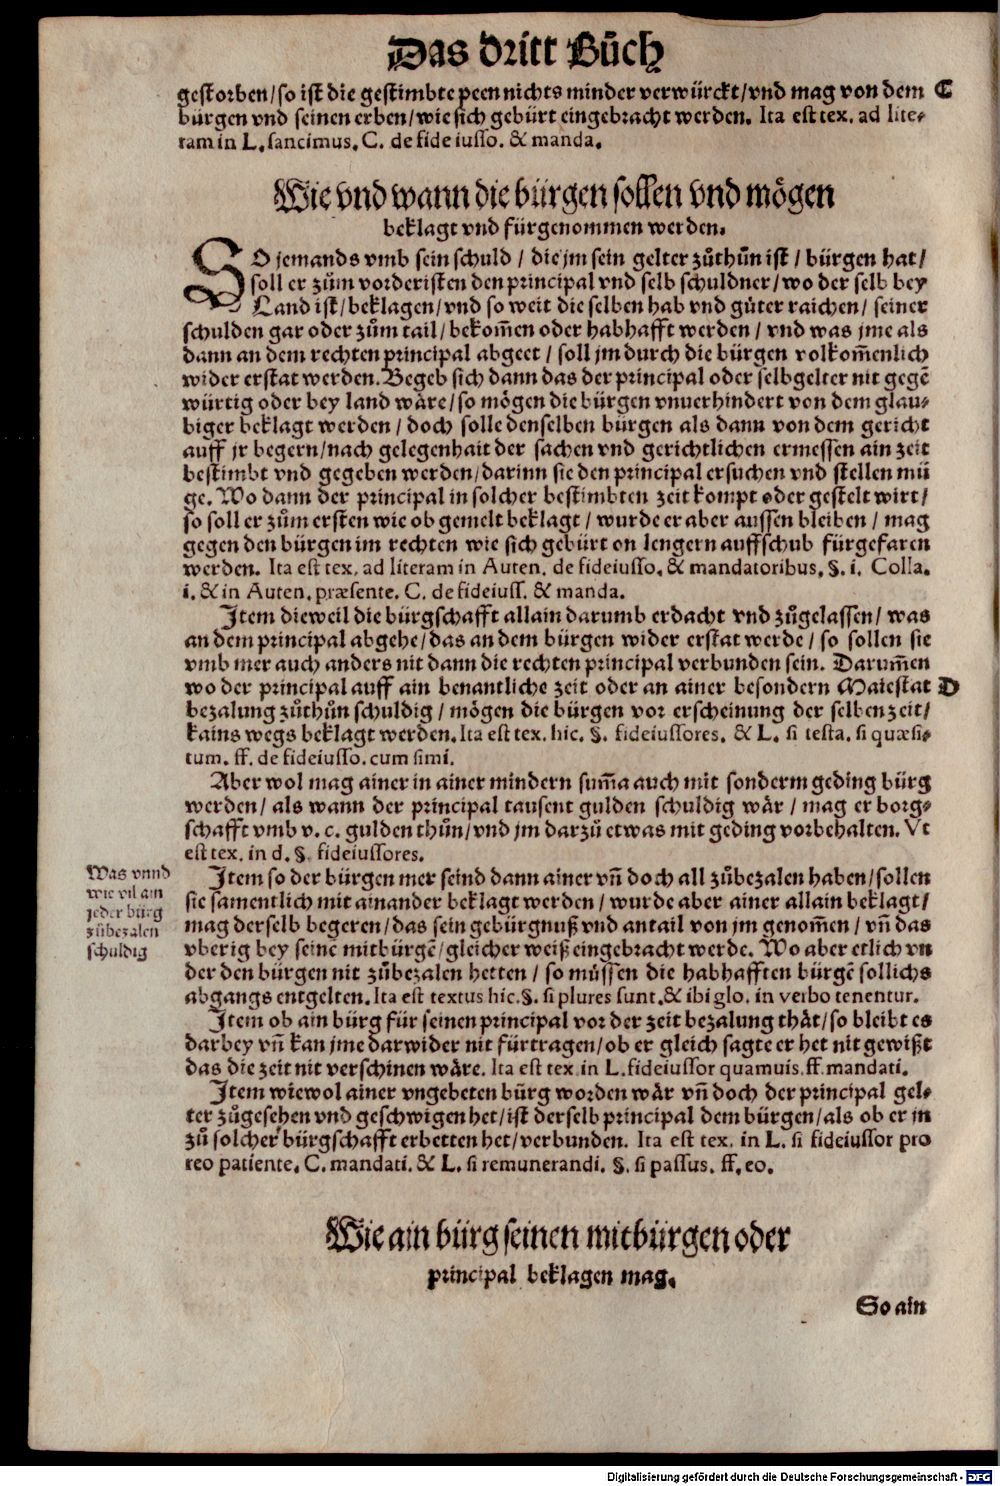 Das dritt Bůch
gestorben/ so ist die gestimbte peen nichts minder verwürckt/ vnd mag von dem C
bürgen vnd seinen erben/ wie sich gebürt eingebracht werden. Ita est tex. ad lite⸗
ram in L. sancimus. C. de fide iusso. & manda.
Wie vnd wann die bürgen sollen vnd mögen
beklagt vnd fürgenommen werden.
SO jemands vmb sein schuld / die jm sein gelter zůthůn ist / bürgen hat/
soll er zům vorderisten den principal vnd selb schuldner/ wo der selb bey
Land ist/ beklagen/ vnd so weit die selben hab vnd gůter raichen/ seiner
schulden gar oder zům tail/ bekom̃en oder habhafft werden / vnd was jme als
dann an dem rechten principal abgeet / soll jm durch die bürgen volkom̃enlich
wider erstat werden. Begeb sich dann das der principal oder selbgelter nit gegẽ
würtig oder bey land wåre/ so mögen die bürgen vnuerhindert von dem glau⸗
biger beklagt werden / doch solle denselben bürgen als dann von dem gericht
auff jr begern/ nach gelegenhait der sachen vnd gerichtlichen ermessen ain zeit
bestimbt vnd gegeben werden/ darinn sie den principal ersuchen vnd stellen mü
ge. Wo dann der principal in solcher bestimbten zeit kompt oder gestelt wirt/
so soll er zům ersten wie ob gemelt beklagt / wurde er aber aussen bleiben / mag
gegen den bürgen im rechten wie sich gebürt on lengern auffschub fürgefaren
werden. Ita est tex. ad literam in Auten. de fideiusso. & mandatoribus. §. i. Colla.
i. & in Auten. præsente. C. de fideiuss. & manda.
Item dieweil die bürgschafft allain darumb erdacht vnd zůgelassen/ was
an dem principal abgehe/ das an dem bürgen wider erstat werde / so sollen sie
vmb mer auch anders nit dann die rechten principal verbunden sein. Darum̃en
wo der principal auff ain benantliche zeit oder an ainer besondern Maiestat D
bezalung zůthůn schuldig / mögen die bürgen vor erscheinung der selben zeit/
kains wegs beklagt werden. Ita est tex. hic. §. fideiussores. & L. si testa. si quæsi⸗
tum. ff. de fideiusso. cum simi.
Aber wol mag ainer in ainer mindern sum̃a auch mit sonderm geding bürg
werden/ als wann der principal tausent gulden schuldig wår / mag er borg⸗
schafft vmb v. c. gulden thůn/ vnd jm darzů etwas mit geding vorbehalten. Vt
est tex. in d. §. fideiussores.
Was vnnd
wie vil ain
jeder bürg
zůbezalen
schuldig
Item so der bürgen mer seind dann ainer vñ doch all zůbezalen haben/ sollen
sie samentlich mit ainander beklagt werden / wurde aber ainer allain beklagt/
mag derselb begeren/ das sein gebürgnuß vnd antail von jm genom̃en/ vñ das
vberig bey seinẽ mitbürgẽ/ gleicher weiß eingebracht werde. Wo aber etlich vn
der den bürgen nit zůbezalen hetten / so müssen die habhafften bürgẽ sollichs
abgangs entgelten. Ita est textus hic. §. si plures sunt. & ibi glo. in verbo tenentur.
Item ob ain bürg für seinen principal vor der zeit bezalung thåt/ so bleibt es
darbey vñ kan jme darwider nit fürtragen/ ob er gleich sagte er het nit gewißt
das die zeit nit verschinen wåre. Ita est tex. in L. fideiussor quamuis. ff. mandati.
Item wiewol ainer vngebeten bürg worden wår vñ doch der principal gel⸗
ter zůgesehen vnd geschwigen het/ ist derselb principal dem bürgen/ als ob er jn
zů solcher bürgschafft erbetten het/ verbunden. Ita est tex. in L. si fideiussor pro
reo patiente. C. mandati. & L. si remunerandi. §. si passus. ff. eo.
Wie ain bürg seinen mitbürgen oder
principal beklagen mag.
So ain
Digitalisierung gefördert durch die Deutsche Forschungsgemeinschaft - DFG